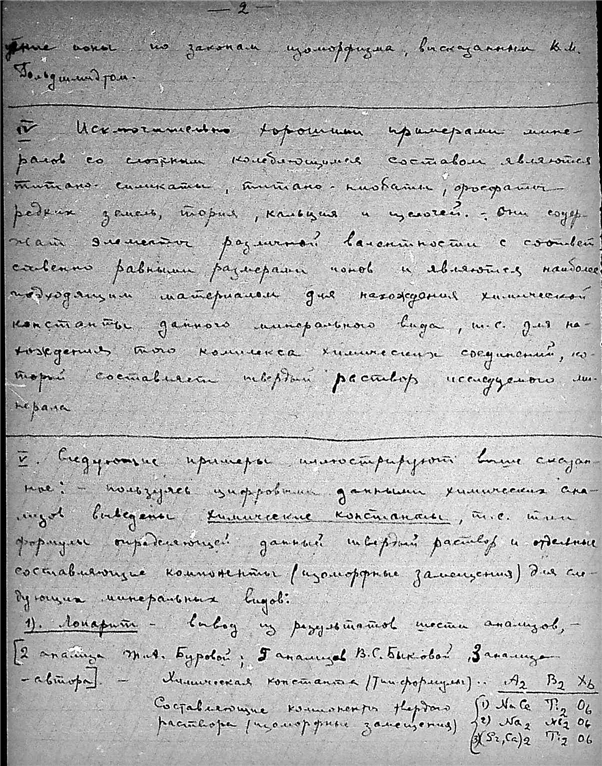 - 2 -
ные ионы по законам изоморфизма, высказанным В.М.
Гольдшмидтом.
IV Исключительно хорошими примерами мине-
ралов со сложным колеблющимся составом являются
титано-силикаты, титано-ниобаты, фосфаты
редких земель, тория, кальция и щелочей. - Они содер-
жат элементы различной валентности с соответ
ственно равными размерами ионов и являются наиболее
подходящим материалом для нахождения химической
константы данного минерального вида, т.е. для на-
хождения того комплекса химических соединений, ко-
торый составляет твердый раствор исследуемого ми-
нерала
V. Следующие примеры иллюстрируют выше сказан-
ное: - пользуясь цифровыми данными химических ана-
лизов выведены химические константы, т.е. тип
формулы определяющей данный твердый раствор и отдельные
составляющие компоненты (изоморфные замещения) для сле-
дующих минеральных видов:
1). Лопарит - вывод из результатов шести анализов, -
[2 анализа Буровой; анализов В.С. Быковой, 3 анализа
- автора]. - Химическая константа (тип формулы) .. A2 B2 X6
Составляющие компоненты твердого
раствора (изоморфные замещения)
1) Na Ce Ti2 O6
2) Na2 Nb2 O6
3) (Sr, Ca)2 Ti2 O6